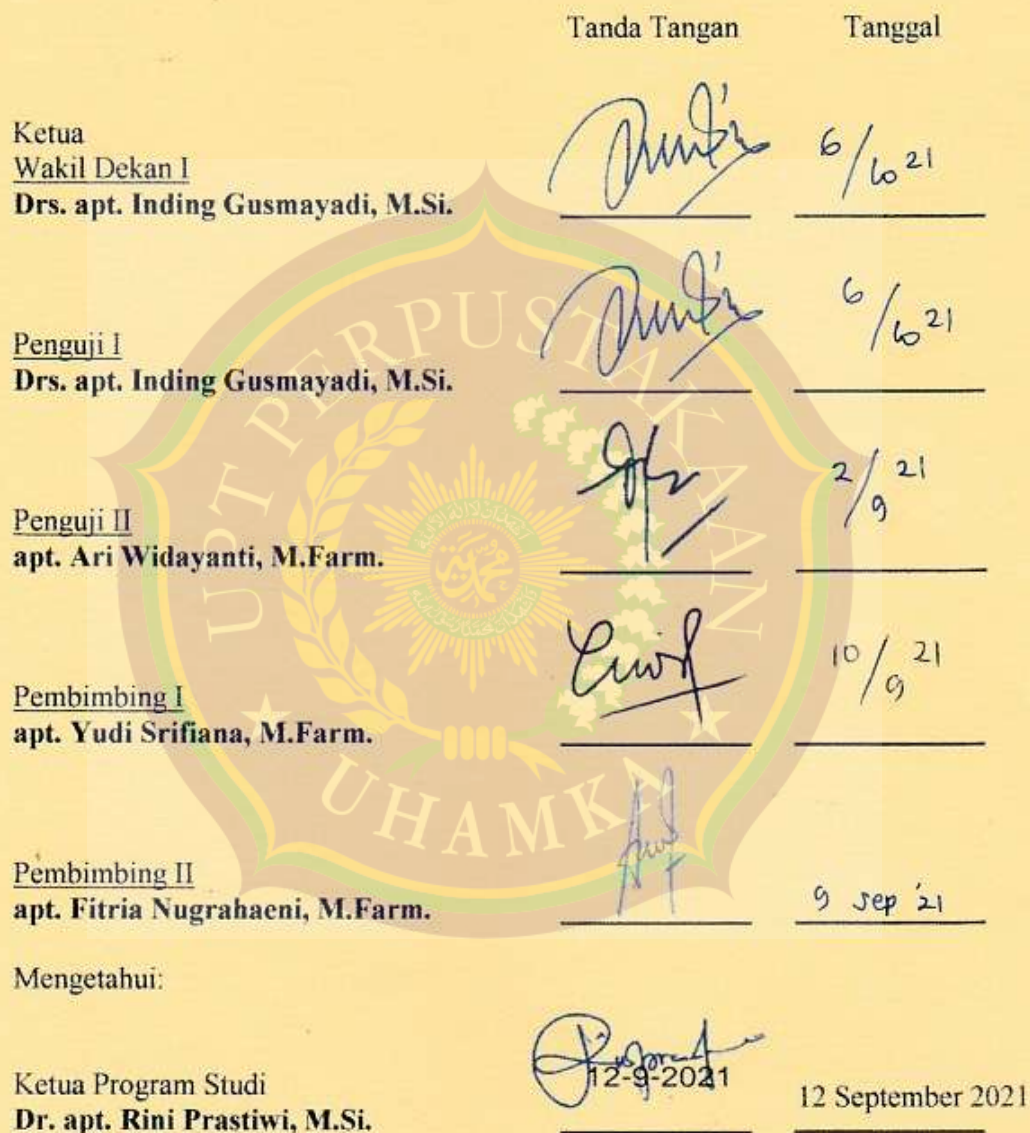 Tanda Tangan Tanggal
Ketua
Wakil Dekan I
Drs. apt. Inding Gusmayadi, M.Si.
6/10 21
Penguji I
Drs. apt. Inding Gusmayadi, M.Si.
6/10 21
Penguji II
apt. Ari Widayanti, M.Farm.
2/9 21
Pembimbing I
apt. Yudi Srifiana, M.Farm.
10/9 21
Pembimbing II
apt. Fitria Nugrahaeni, M.Farm.
9 sep '21
Mengetahui:
12-9-2021
Ketua Program Studi
12 September 2021
Dr. apt. Rini Prastiwi, M.Si.
UPT PERPUSTAKAAN
UHAMKA